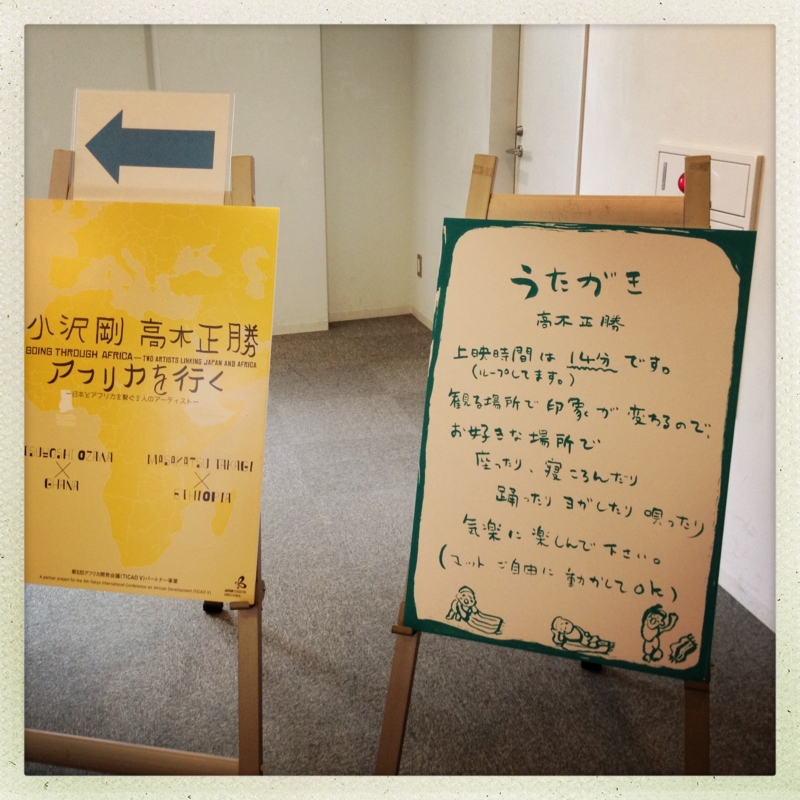 小沢剛 高木正勝
GOING THROUGH AFRICA—TWO ARTISTS LINKING JAPAN AND AFRICA
アフリカを行く
―日本とアフリカを繋ぐ2人のアーティスト―
OZANA
×
GHANA
MASAKATSU TAKAGI
×
ETHIOPIA
第5回アフリカ開発会議(TICAD V)パートナー事業
A partner project for the 5th Tokyo International Conference on African Development (TICAD V)
うたがき
高木正勝
上映時間は 14分 です。
(ループしてます。)
観る場所で 印象が 変わるので、
お好きな場所で
座ったり、寝ころんだり
踊ったり ヨガしたり 唄ったり
気楽に 楽しんで 下さい。
(マット ご自由に 動かして OK)